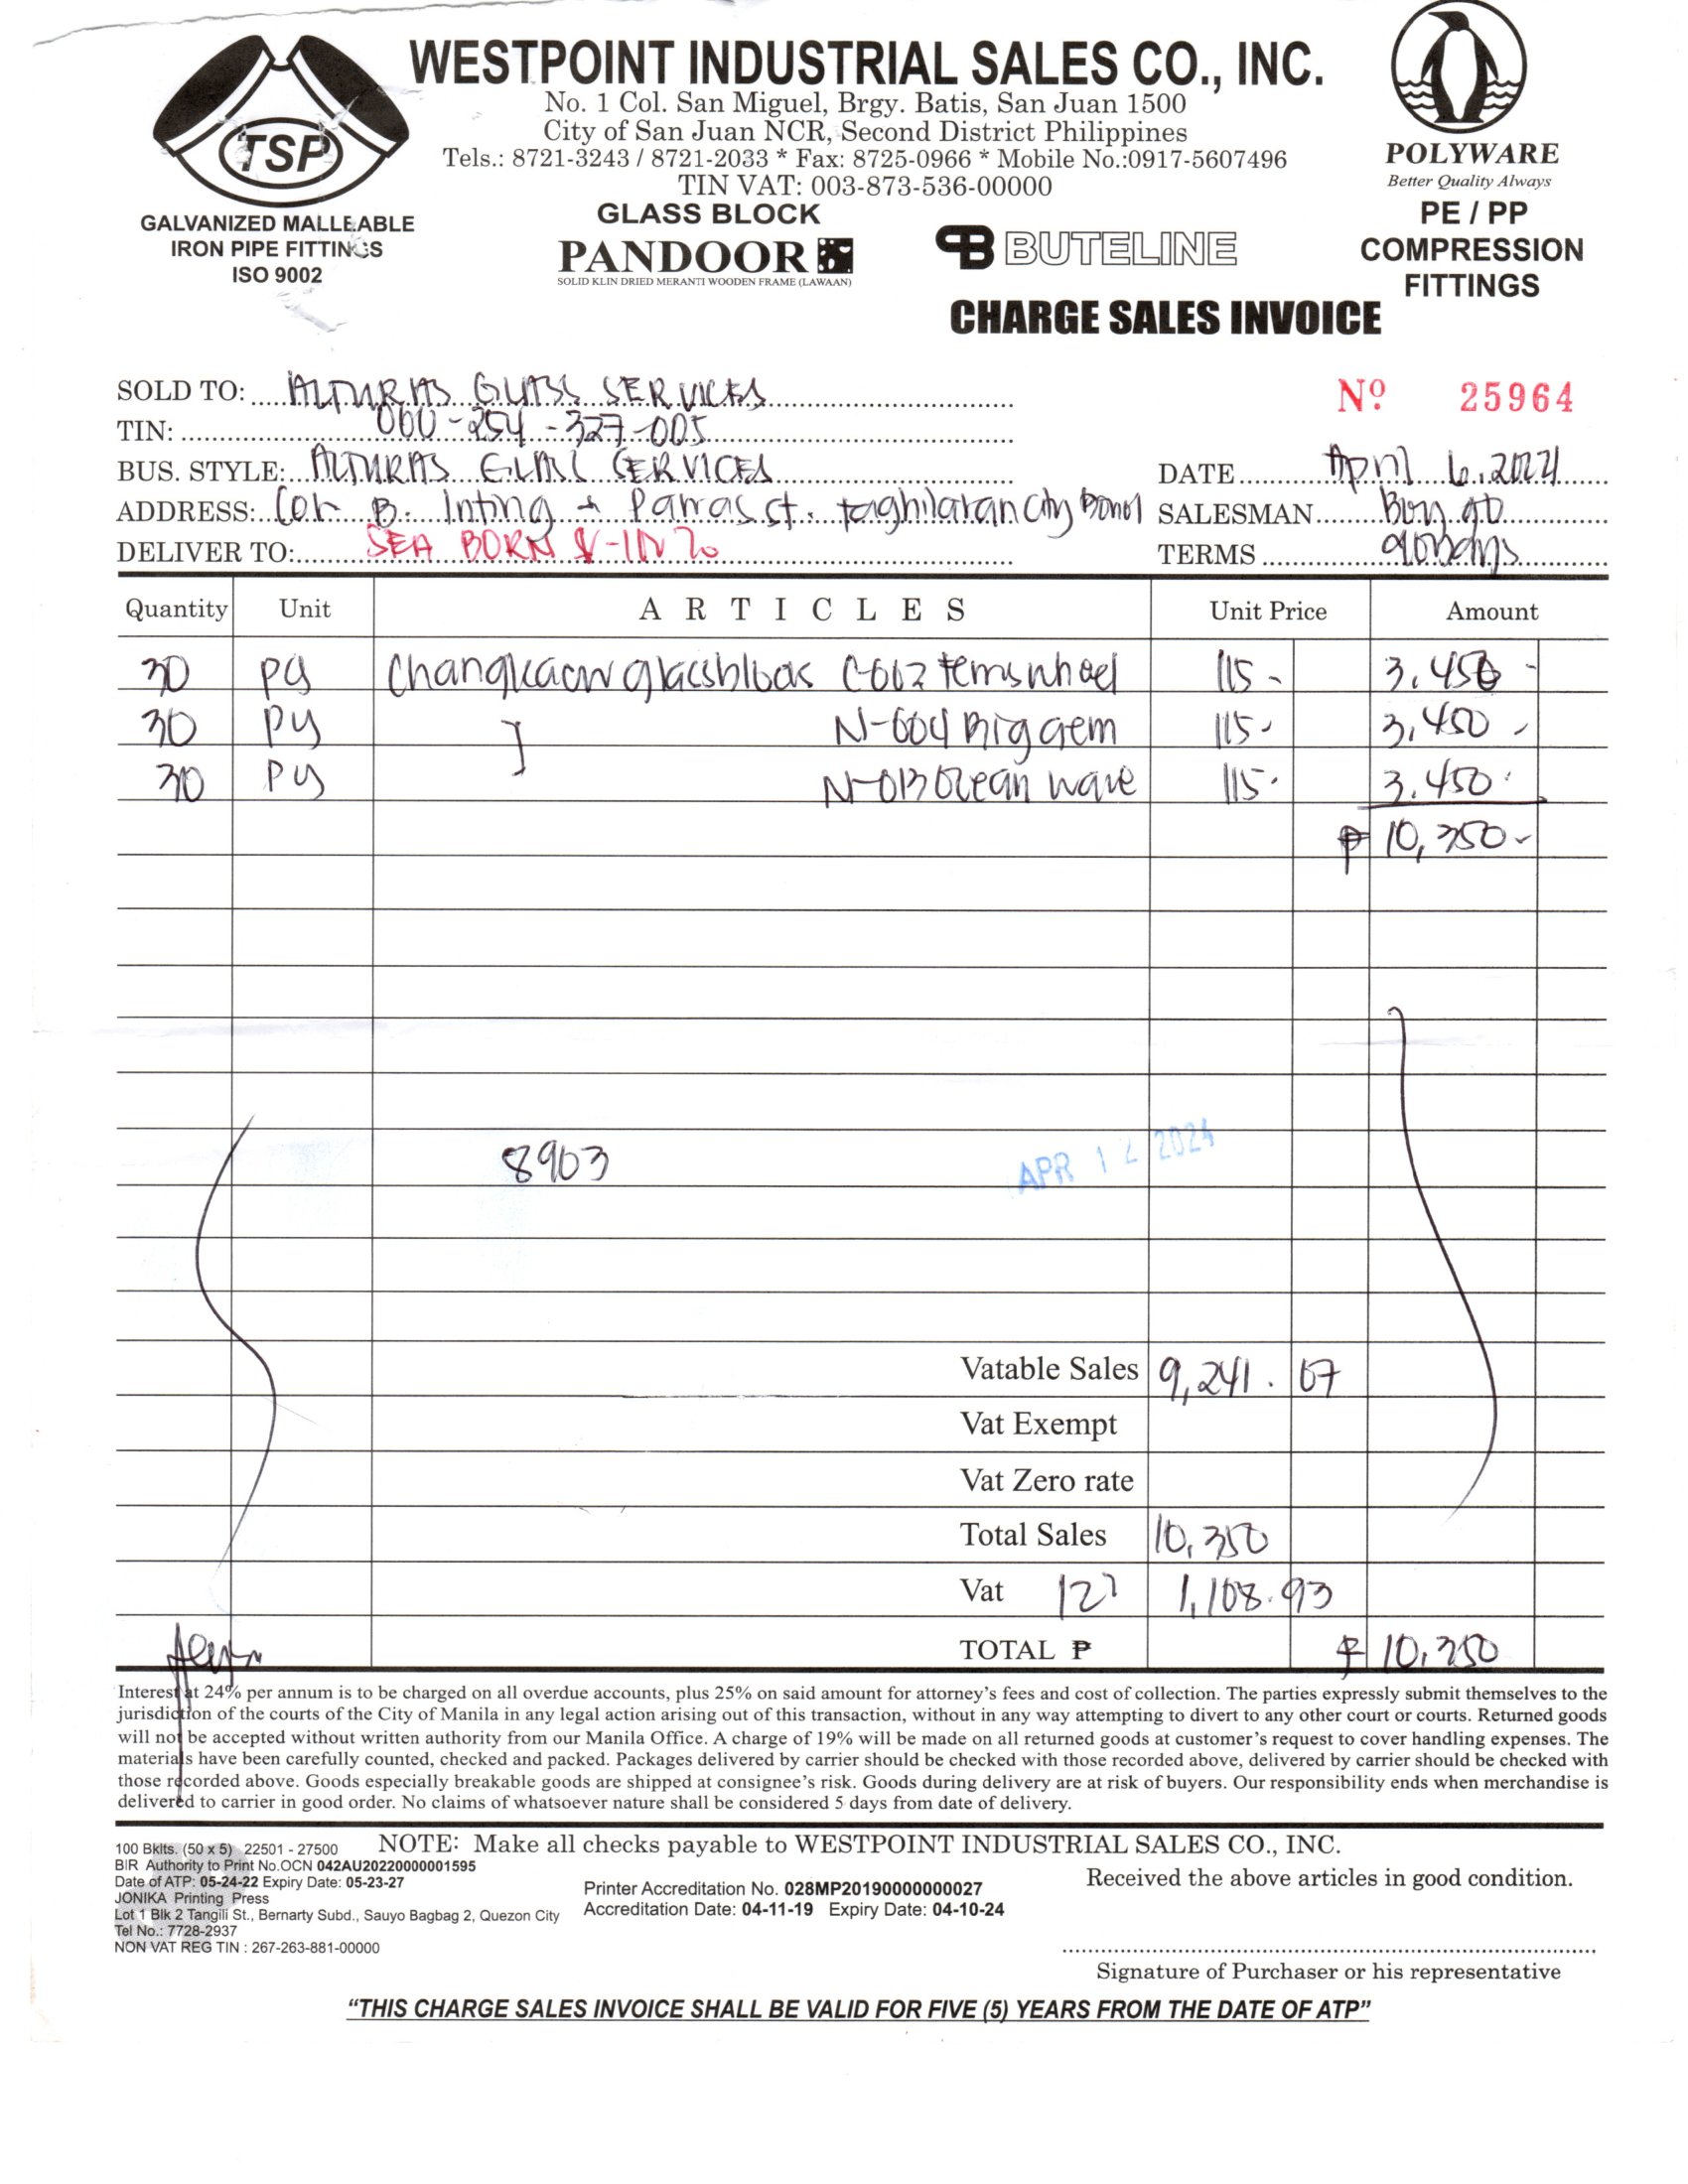 WESTPOINT INDUSTRIAL SALES CO., INC.
No. 1 Col. San Miguel, Brgy. Batis, San Juan 1500
City of San Juan NCR, Second District Philippines
Tels.: 8721-3243 / 8721-2033 * Fax: 8725-0966 * Mobile No.:0917-5607496
TIN VAT: 003-873-536-00000
TSP
GALVANIZED MALLEABLE
IRON PIPE FITTINGS
ISO 9002
GLASS BLOCK
PANDOOR
SOLID KLIN DRIED MERANTI WOODEN FRAME (LAWAAN)
BUTELINE
POLYWARE
Better Quality Always
PE / PP
COMPRESSION
FITTINGS
CHARGE SALES INVOICE
SOLD TO: ALTURAS GLASS SERVICES
Nº 25964
TIN: 000-254-327-005
BUS. STYLE: ALTURAS GLASS SERVICES
DATE April 6, 2024
ADDRESS: Cor B. Inting + Parras st. tagbilaran City Bohol
SALESMAN
DELIVER TO: SEA BORN
TERMS 90 days
Quantity Unit ARTICLES Unit Price Amount
30 glassblock 115- 3,450-
30 N-004 Big gem 115- 3,450-
30 N-013 Ocean wave 115- 3,450-
₱ 10,350-
8903
APR 12 2024
Vatable Sales 9,241.07
Vat Exempt
Vat Zero rate
Total Sales 10,350
Vat 12% 1,108.93
TOTAL ₱ ₱ 10,350
Interest at 24% per annum is to be charged on all overdue accounts, plus 25% on said amount for attorney's fees and cost of collection. The parties expressly submit themselves to the
jurisdiction of the courts of the City of Manila in any legal action arising out of this transaction, without in any way attempting to divert to any other court or courts. Returned goods
will not be accepted without written authority from our Manila Office. A charge of 19% will be made on all returned goods at customer's request to cover handling expenses. The
materials have been carefully counted, checked and packed. Packages delivered by carrier should be checked with those recorded above, delivered by carrier should be checked with
those recorded above. Goods especially breakable goods are shipped at consignee's risk. Goods during delivery are at risk of buyers. Our responsibility ends when merchandise is
delivered to carrier in good order. No claims of whatsoever nature shall be considered 5 days from date of delivery.
NOTE: Make all checks payable to WESTPOINT INDUSTRIAL SALES CO., INC.
100 Bklts. (50 x 5) 22501 - 27500
BIR Authority to Print No.OCN 042AU20220000001595
Date of ATP: 05-24-22 Expiry Date: 05-23-27
JONIKA Printing Press
Lot 1 Blk 2 Tangili St., Bernarty Subd., Sauyo Bagbag 2, Quezon City
Tel No.: 7728-2937
NON VAT REG TIN : 267-263-881-00000
Printer Accreditation No. 028MP20190000000027
Accreditation Date: 04-11-19 Expiry Date: 04-10-24
Received the above articles in good condition.
Signature of Purchaser or his representative
"THIS CHARGE SALES INVOICE SHALL BE VALID FOR FIVE (5) YEARS FROM THE DATE OF ATP"